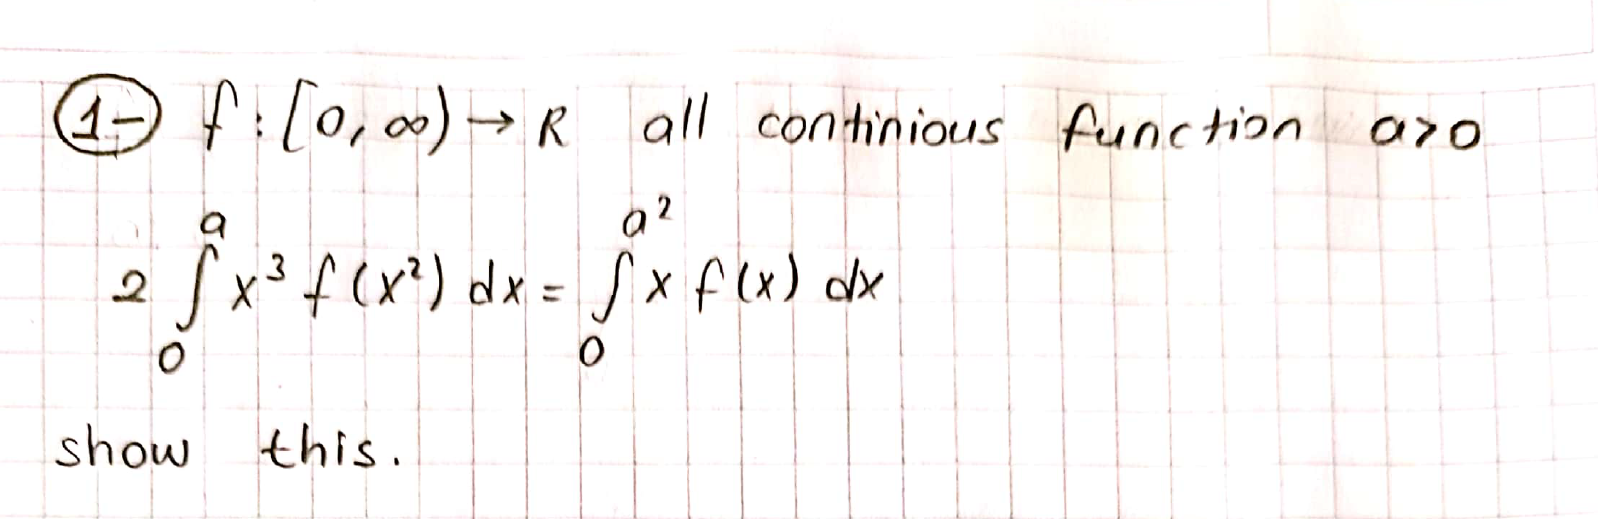 1- f:[0,∞)→R all continious function a>0
2∫₀ᵃ x³ f(x²) dx = ∫₀^a² x f(x) dx
show this.